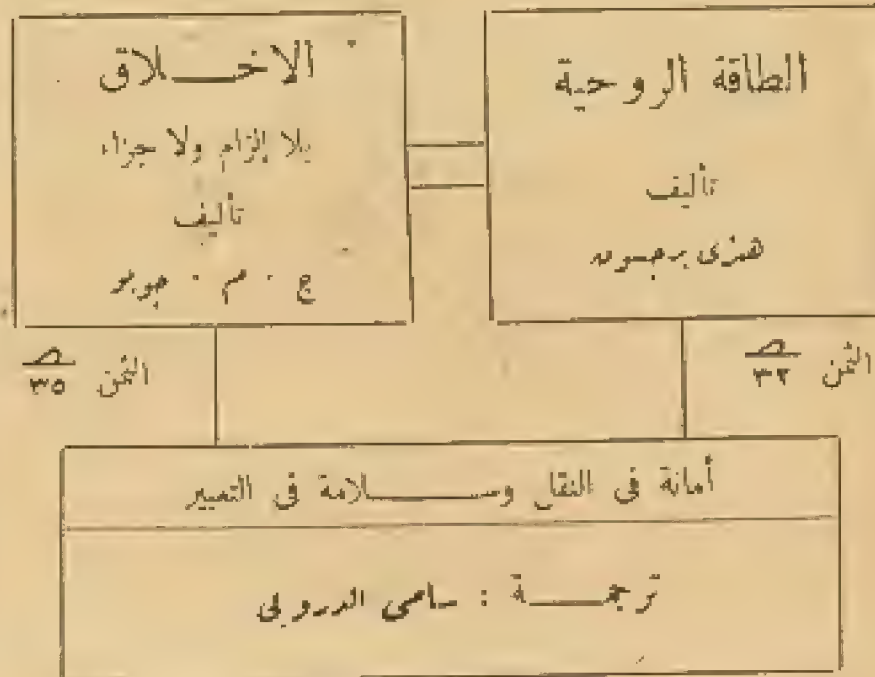 الطاقة الروحية
تأليف
هنرى برجسون
الثمن ص ٣٢
الاخـــلاق
بلا إلزام ولا جزاء
تأليف
ج . م . جويو
الثمن ص ٣٥
أمانة فى النقل وســـــلامة فى التعبير
ترجمـــــة : سامى الدروبى